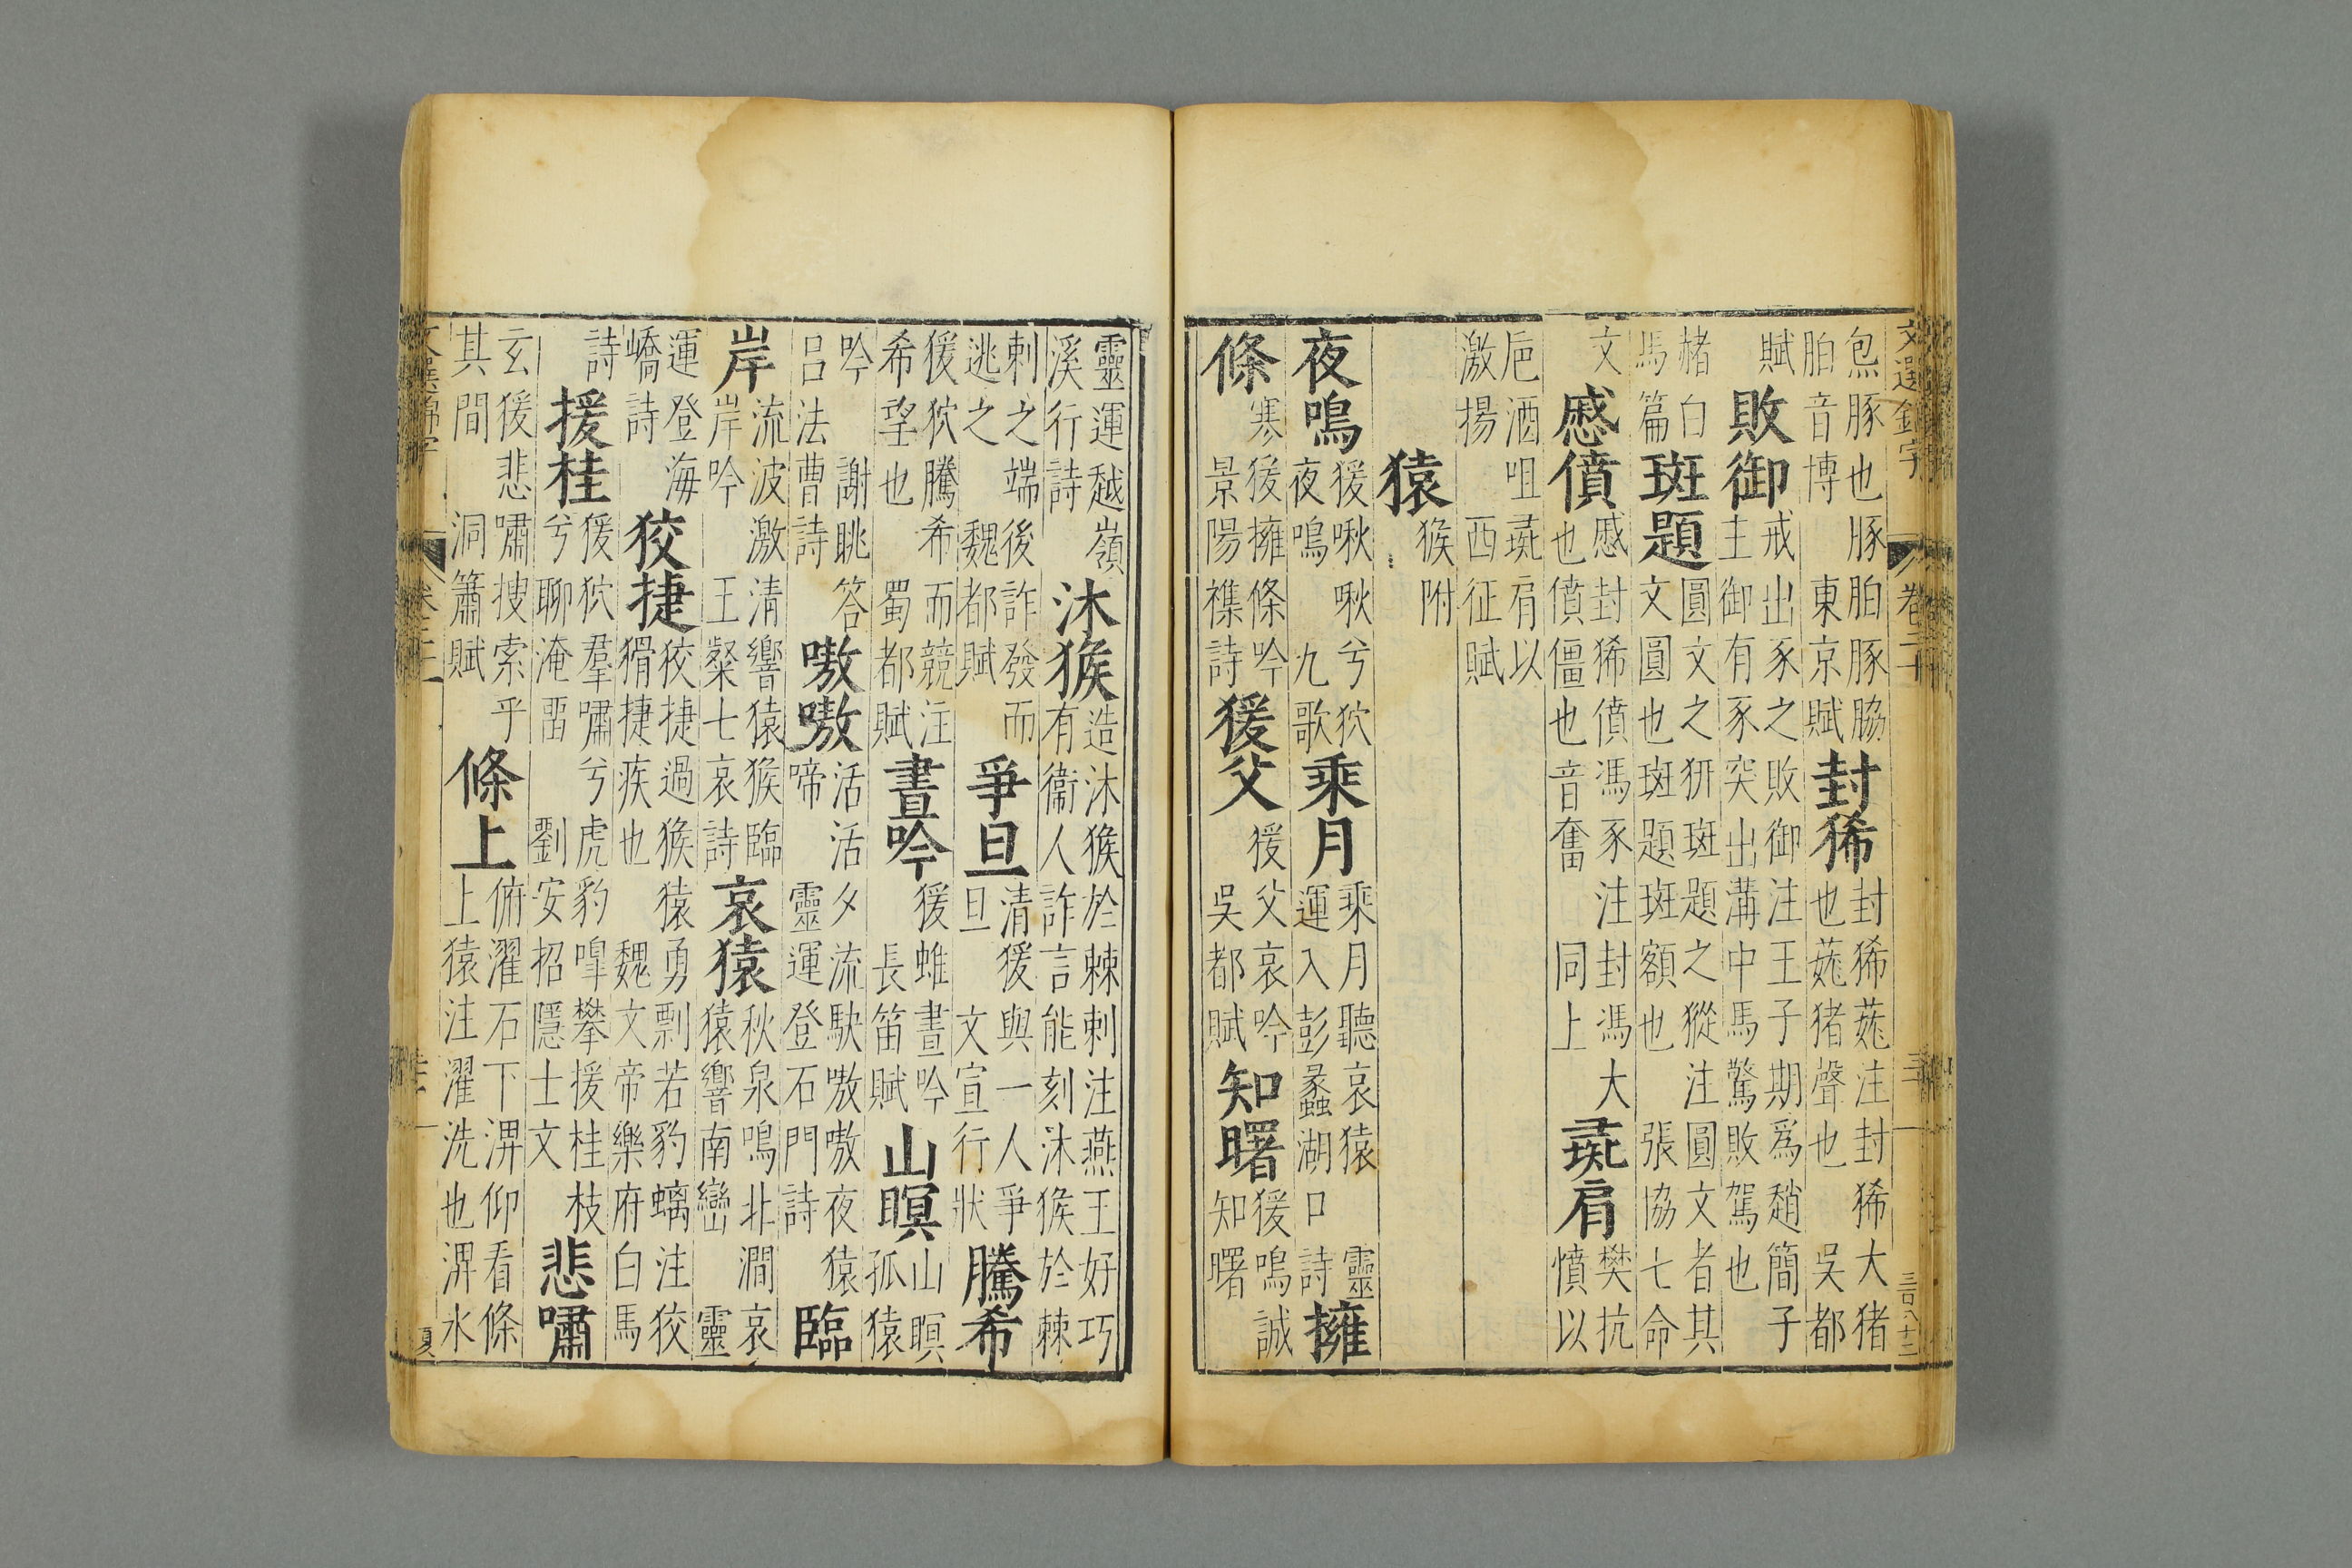 文選錦字 卷二十 三十 三百八十二
炰豚也豚胉豚脇
胉音博 東京賦
封狶
封狶𧱓注封狶大猪
也𧱓猪聲也 吳都
賦
敗御
戒出豕之敗御注王子期爲趙簡子
主御有豕突出溝中馬驚敗駕也
赭白
馬篇
斑題
圓文之豜斑題之豵注圓文者其
文圓也斑題斑額也 張協七命
文
慼僨
慼封狶僨馮豕注封馮大
也僨僵也音奮 同上
彘肩
樊抗
憤以
巵酒咀彘肩以
激揚 西征賦
猿 猴附
夜鳴
猨啾啾兮狖
夜鳴 九歌
乘月
乘月聽哀猿 靈
運入彭蠡湖口詩
擁
條
寒猨擁條吟
景陽禊詩
猨父
猨父哀吟
吳都賦
知曙
猨鳴誠
知曙
靈運越嶺
溪行詩
沐猴
造沐猴於棘刺注燕王好巧
有衞人詐言能刻沐猴於棘
刺之端後詐發而
逃之 魏都賦
爭旦
清猨與一人爭
旦 文宣行狀
騰希
猨狖騰希而競注
希望也 蜀都賦
晝吟
猨蜼晝吟
長笛賦
山暝
山暝
孤猿
吟 謝眺答
呂法曹詩
嗷嗷
活活夕流駛嗷嗷夜猿
啼 靈運登石門詩
臨
岸
流波激清響猿猴臨
岸吟 王粲七哀詩
哀猿
秋泉鳴北澗哀
猿響南巒 靈
運登海
嶠詩
狡捷
狡捷過猴猿勇剽若豹螭注狡
猾捷疾也 魏文帝樂府白馬
詩
援桂
猨狖羣嘯兮虎豹嘷攀援桂枝
兮聊淹留 劉安招隱士文
悲嘯
玄猨悲嘯搜索乎
其間 洞簫賦
條上
俯濯石下潭仰看條
上猿注濯洗也潭水
文選錦字 卷二十